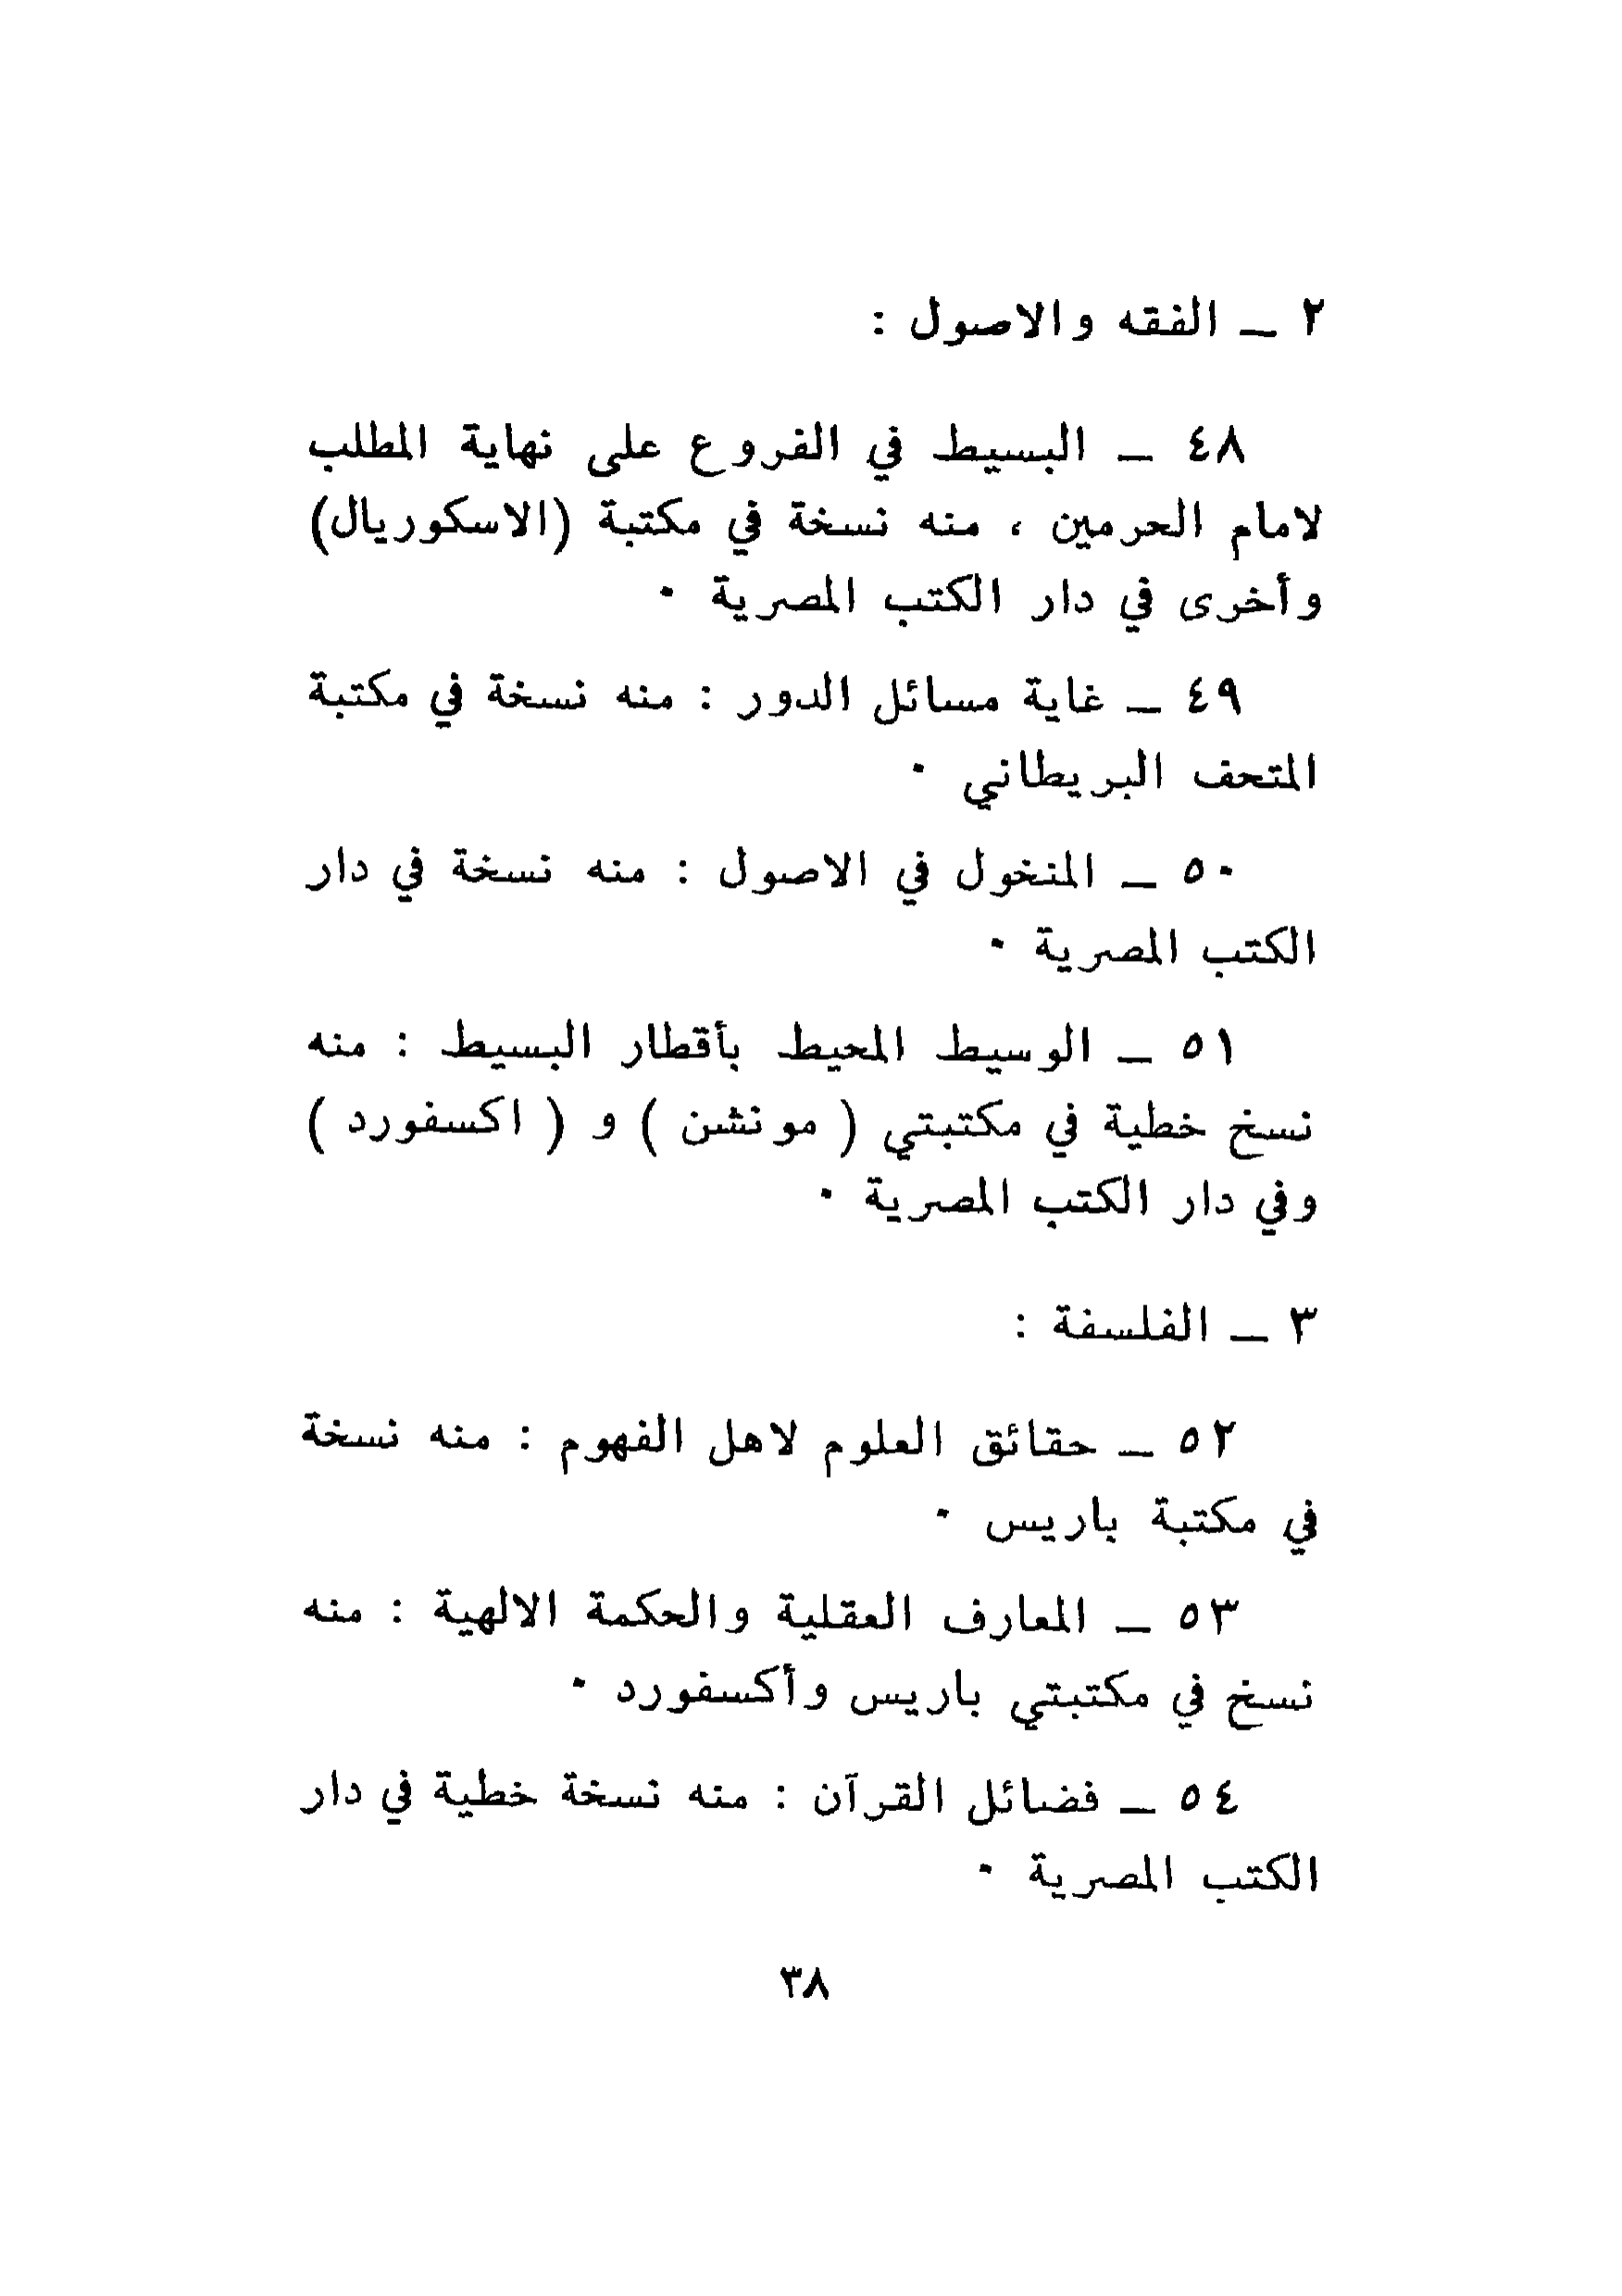 ٢ ـ الفقه والاصول :
٤٨ ـ البسيط في الفروع على نهاية المطلب
لامام الحرمين ، منه نسخة في مكتبة (الاسكوريال)
وأخرى في دار الكتب المصرية ٠
٤٩ ـ غاية مسائل الدور : منه نسخة في مكتبة
المتحف البريطاني ٠
٥٠ ـ المنخول في الاصول : منه نسخة في دار
الكتب المصرية ٠
٥١ ـ الوسيط المحيط بأقطار البسيط : منه
نسخ خطية في مكتبتي ( مونشن ) و ( اكسفورد )
وفي دار الكتب المصرية ٠
٣ ـ الفلسفة :
٥٢ ـ حقائق العلوم لاهل الفهوم : منه نسخة
في مكتبة باريس ٠
٥٣ ـ المعارف العقلية والحكمة الالهية : منه
نسخ في مكتبتي باريس وأكسفورد ٠
٥٤ ـ فضائل القرآن : منه نسخة خطية في دار
الكتب المصرية ٠
٣٨